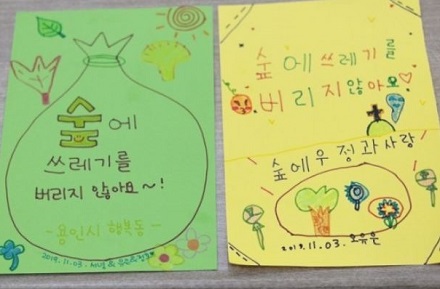 숲에
쓰레기를
버리지 않아요~!
-용인시 행복동-
2019.11.03.
숲에쓰레기를
버리지않아요
숲에우정과사랑
2019.11.03. 오유은